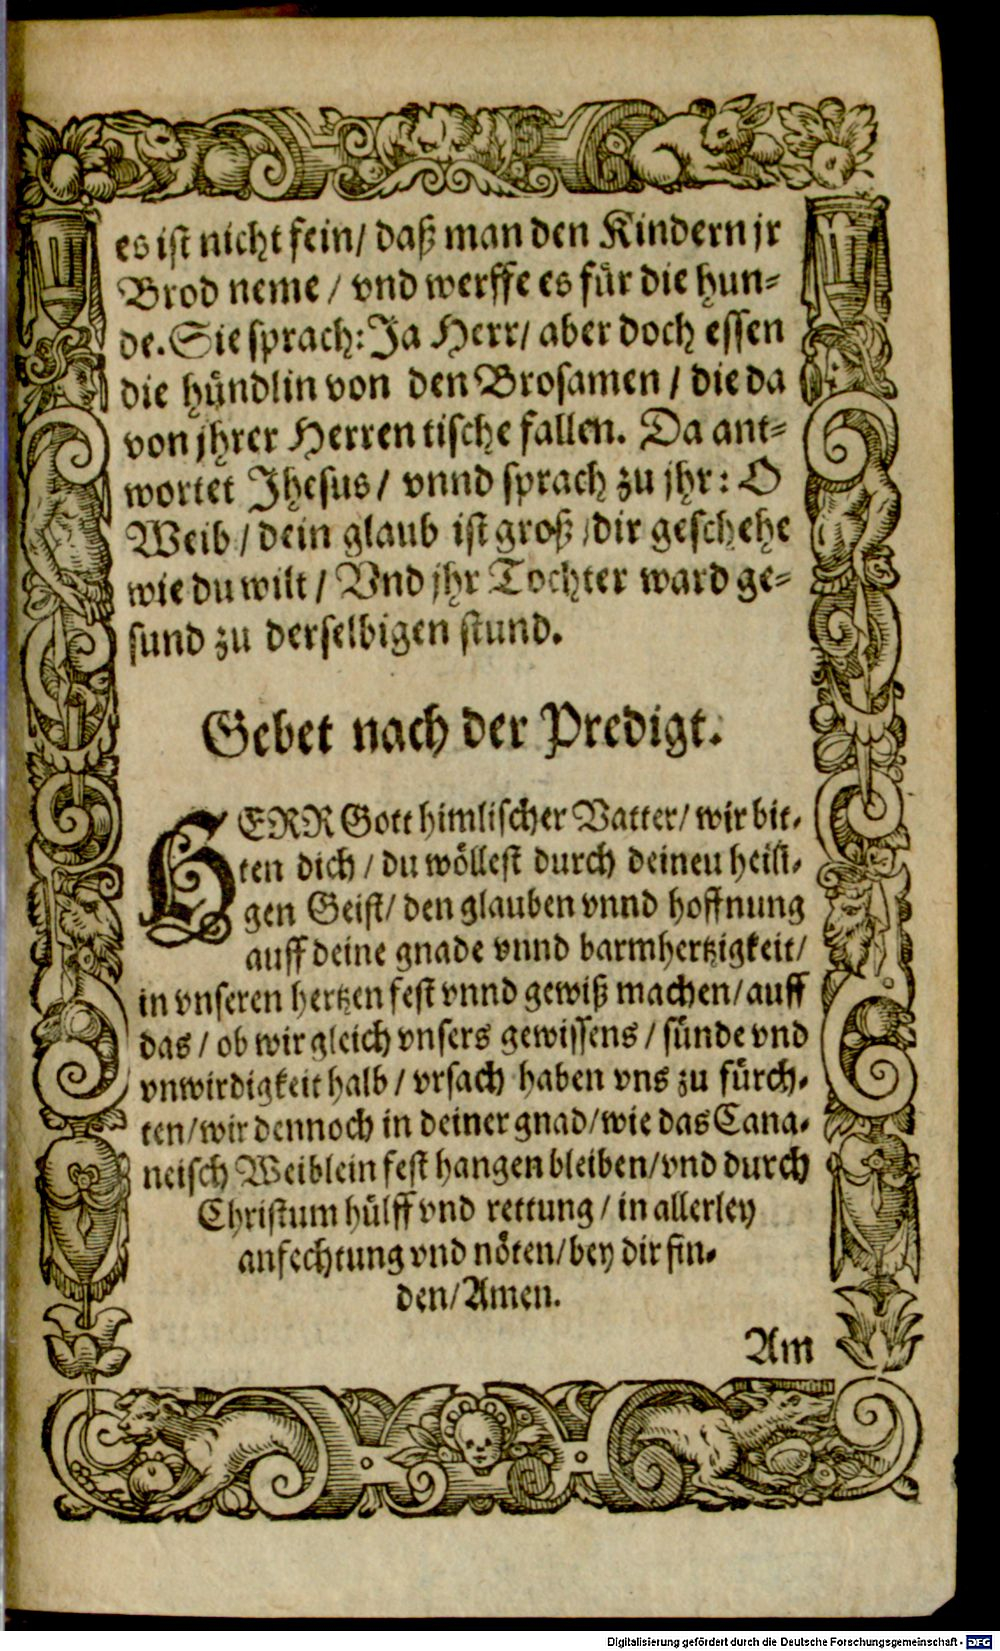 es ist nicht fein/ daß man den Kindern jr
Brod neme / vnd werffe es für die hun-
de. Sie sprach: Ja Herr/ aber doch essen
die hündlin von den Brosamen / die da
von jhrer Herren tische fallen. Da ant-
wortet Jhesus / vnnd sprach zu jhr: O
Weib / dein glaub ist groß /dir geschehe
wie du wilt / Vnd jhr Tochter ward ge-
sund zu derselbigen stund.
Gebet nach der Predigt.
HERR Gott himlischer Vatter/ wir bit-
ten dich / du wöllest durch deineu heili-
gen Geist/ den glauben vnnd hoffnung
auff deine gnade vnnd barmhertzigkeit/
in vnseren hertzen fest vnnd gewiß machen/ auff
das / ob wir gleich vnsers gewissens / sünde vnd
vnwirdigkeit halb / vrsach haben vns zu fürch-
ten/ wir dennoch in deiner gnad/ wie das Cana-
neisch Weiblein fest hangen bleiben/ vnd durch
Christum hülff vnd rettung / in allerley
anfechtung vnd nöten/ bey dir fin-
den/ Amen.
Am
Digitalisierung gefördert durch die Deutsche Forschungsgemeinschaft - DFG